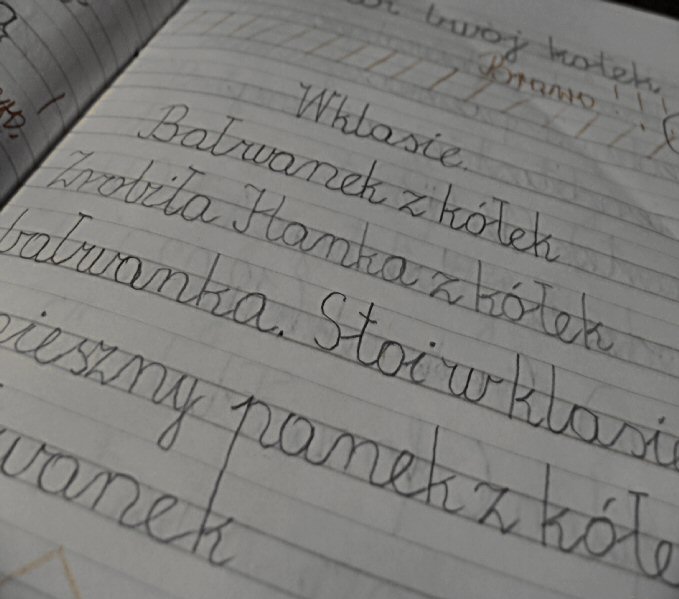 twój kotek
Brawo !!!
W klasie.
Bałwanek z kółek
Zrobiła Hanka z kółek
bałwanka. Stoi w klasie
panek z kółe
wanek